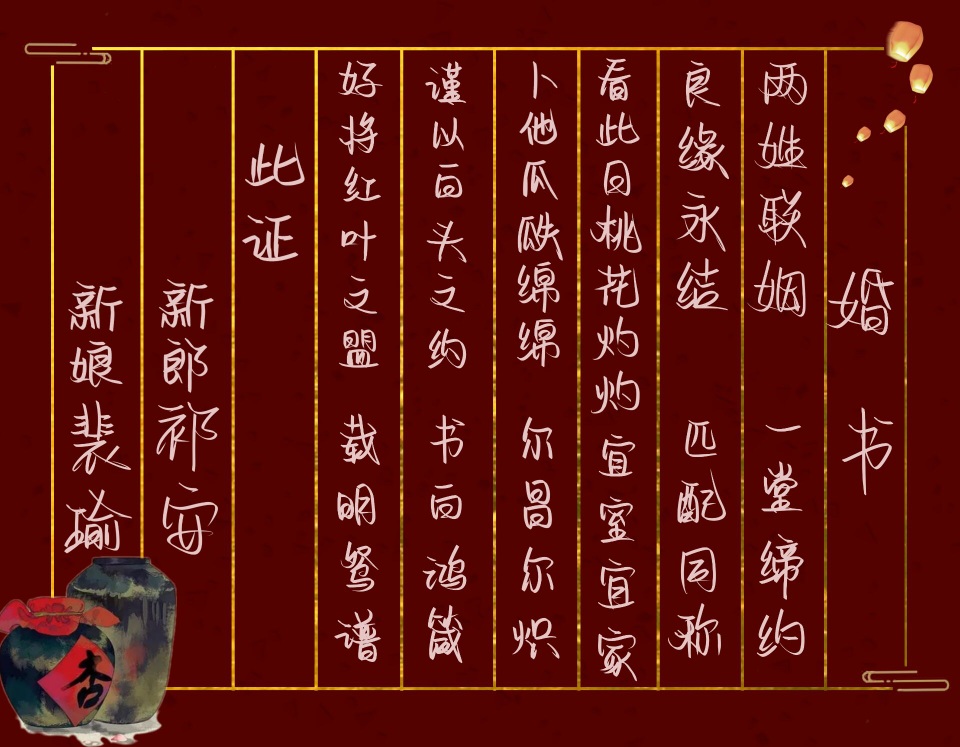 婚书
两姓联姻 一堂缔约
良缘永结 匹配同称
看此日桃花灼灼宜室宜家
卜他瓜瓞绵绵 尔昌尔炽
谨以白头之约 书向鸿笺
好将红叶之盟 载明鸳谱
此证
新郎祁安
新娘裴瑜
杏